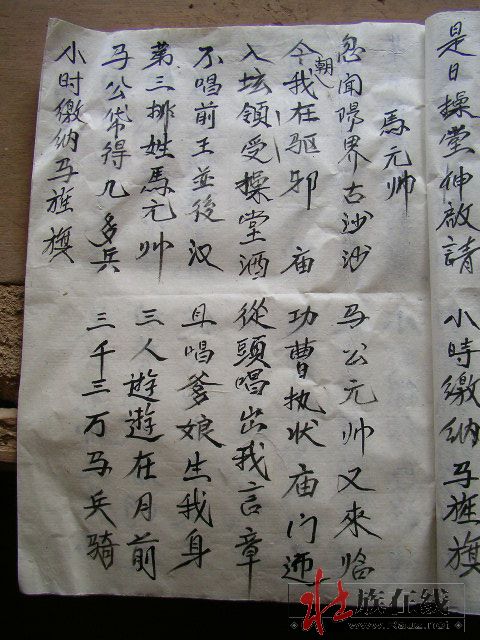 是日操堂伸啟請 小時繳納马旌旗
馬元帅
忽聞陽界古沙沙 马公元帅又來临
今朝我在驱邪庙 功曹执状庙门迎
入坛領受操堂酒 從頭唱出我言章
不唱前王並後汉 且唱爹娘生我身
第三排姓馬元帅 三人遊遊在月前
马公带得几多兵 三千三万马兵骑
小时缴纳马旌旗
壮族在线